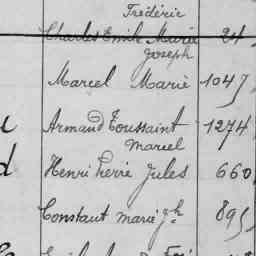 Frédéric
Charles Emile Marie 24
Joseph
Marcel Marie 1047
Armand Toussaint 1274
Marcel
Henri Pierre Jules 660
Constant Marie Jh 895